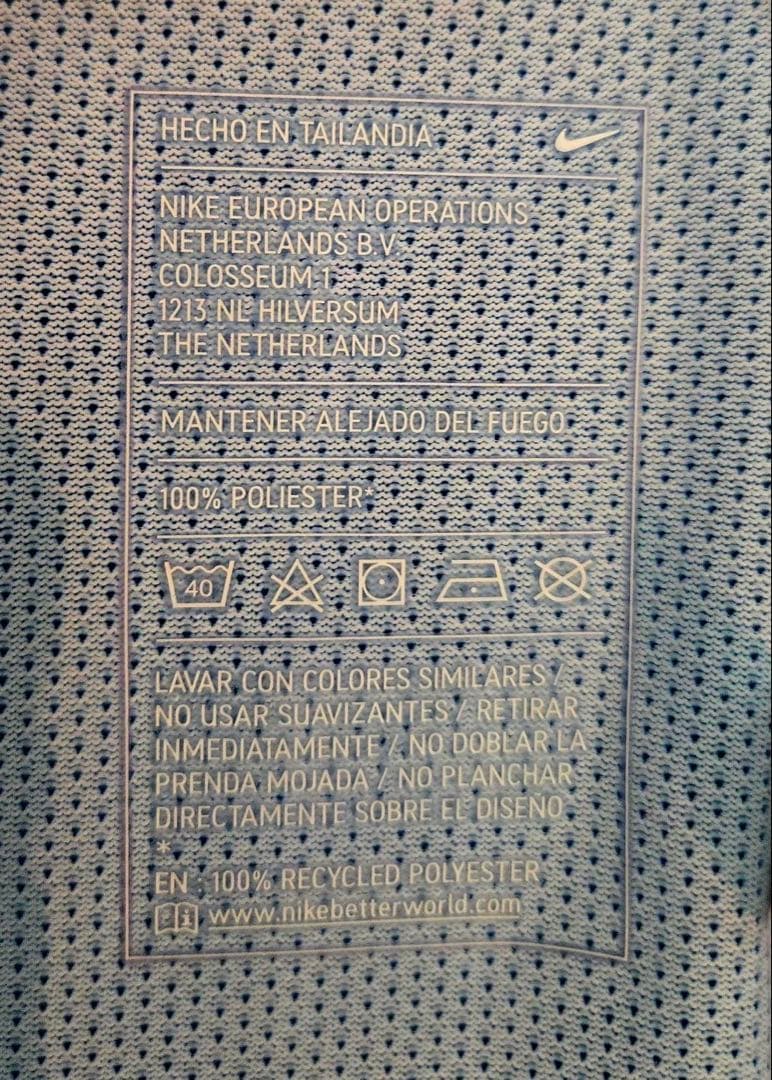 HECHO EN TAILANDIA
NIKE EUROPEAN OPERATIONS
NETHERLANDS B.V.
COLOSSEUM 1
1213 NL HILVERSUM
THE NETHERLANDS
MANTENER ALEJADO DEL FUEGO
100% POLIESTER*
40
LAVAR CON COLORES SIMILARES /
NO USAR SUAVIZANTES / RETIRAR
INMEDIATAMENTE / NO DOBLAR LA
PRENDA MOJADA / NO PLANCHAR
DIRECTAMENTE SOBRE EL DISENO
*
EN : 100% RECYCLED POLYESTER
www.nikebetterworld.com